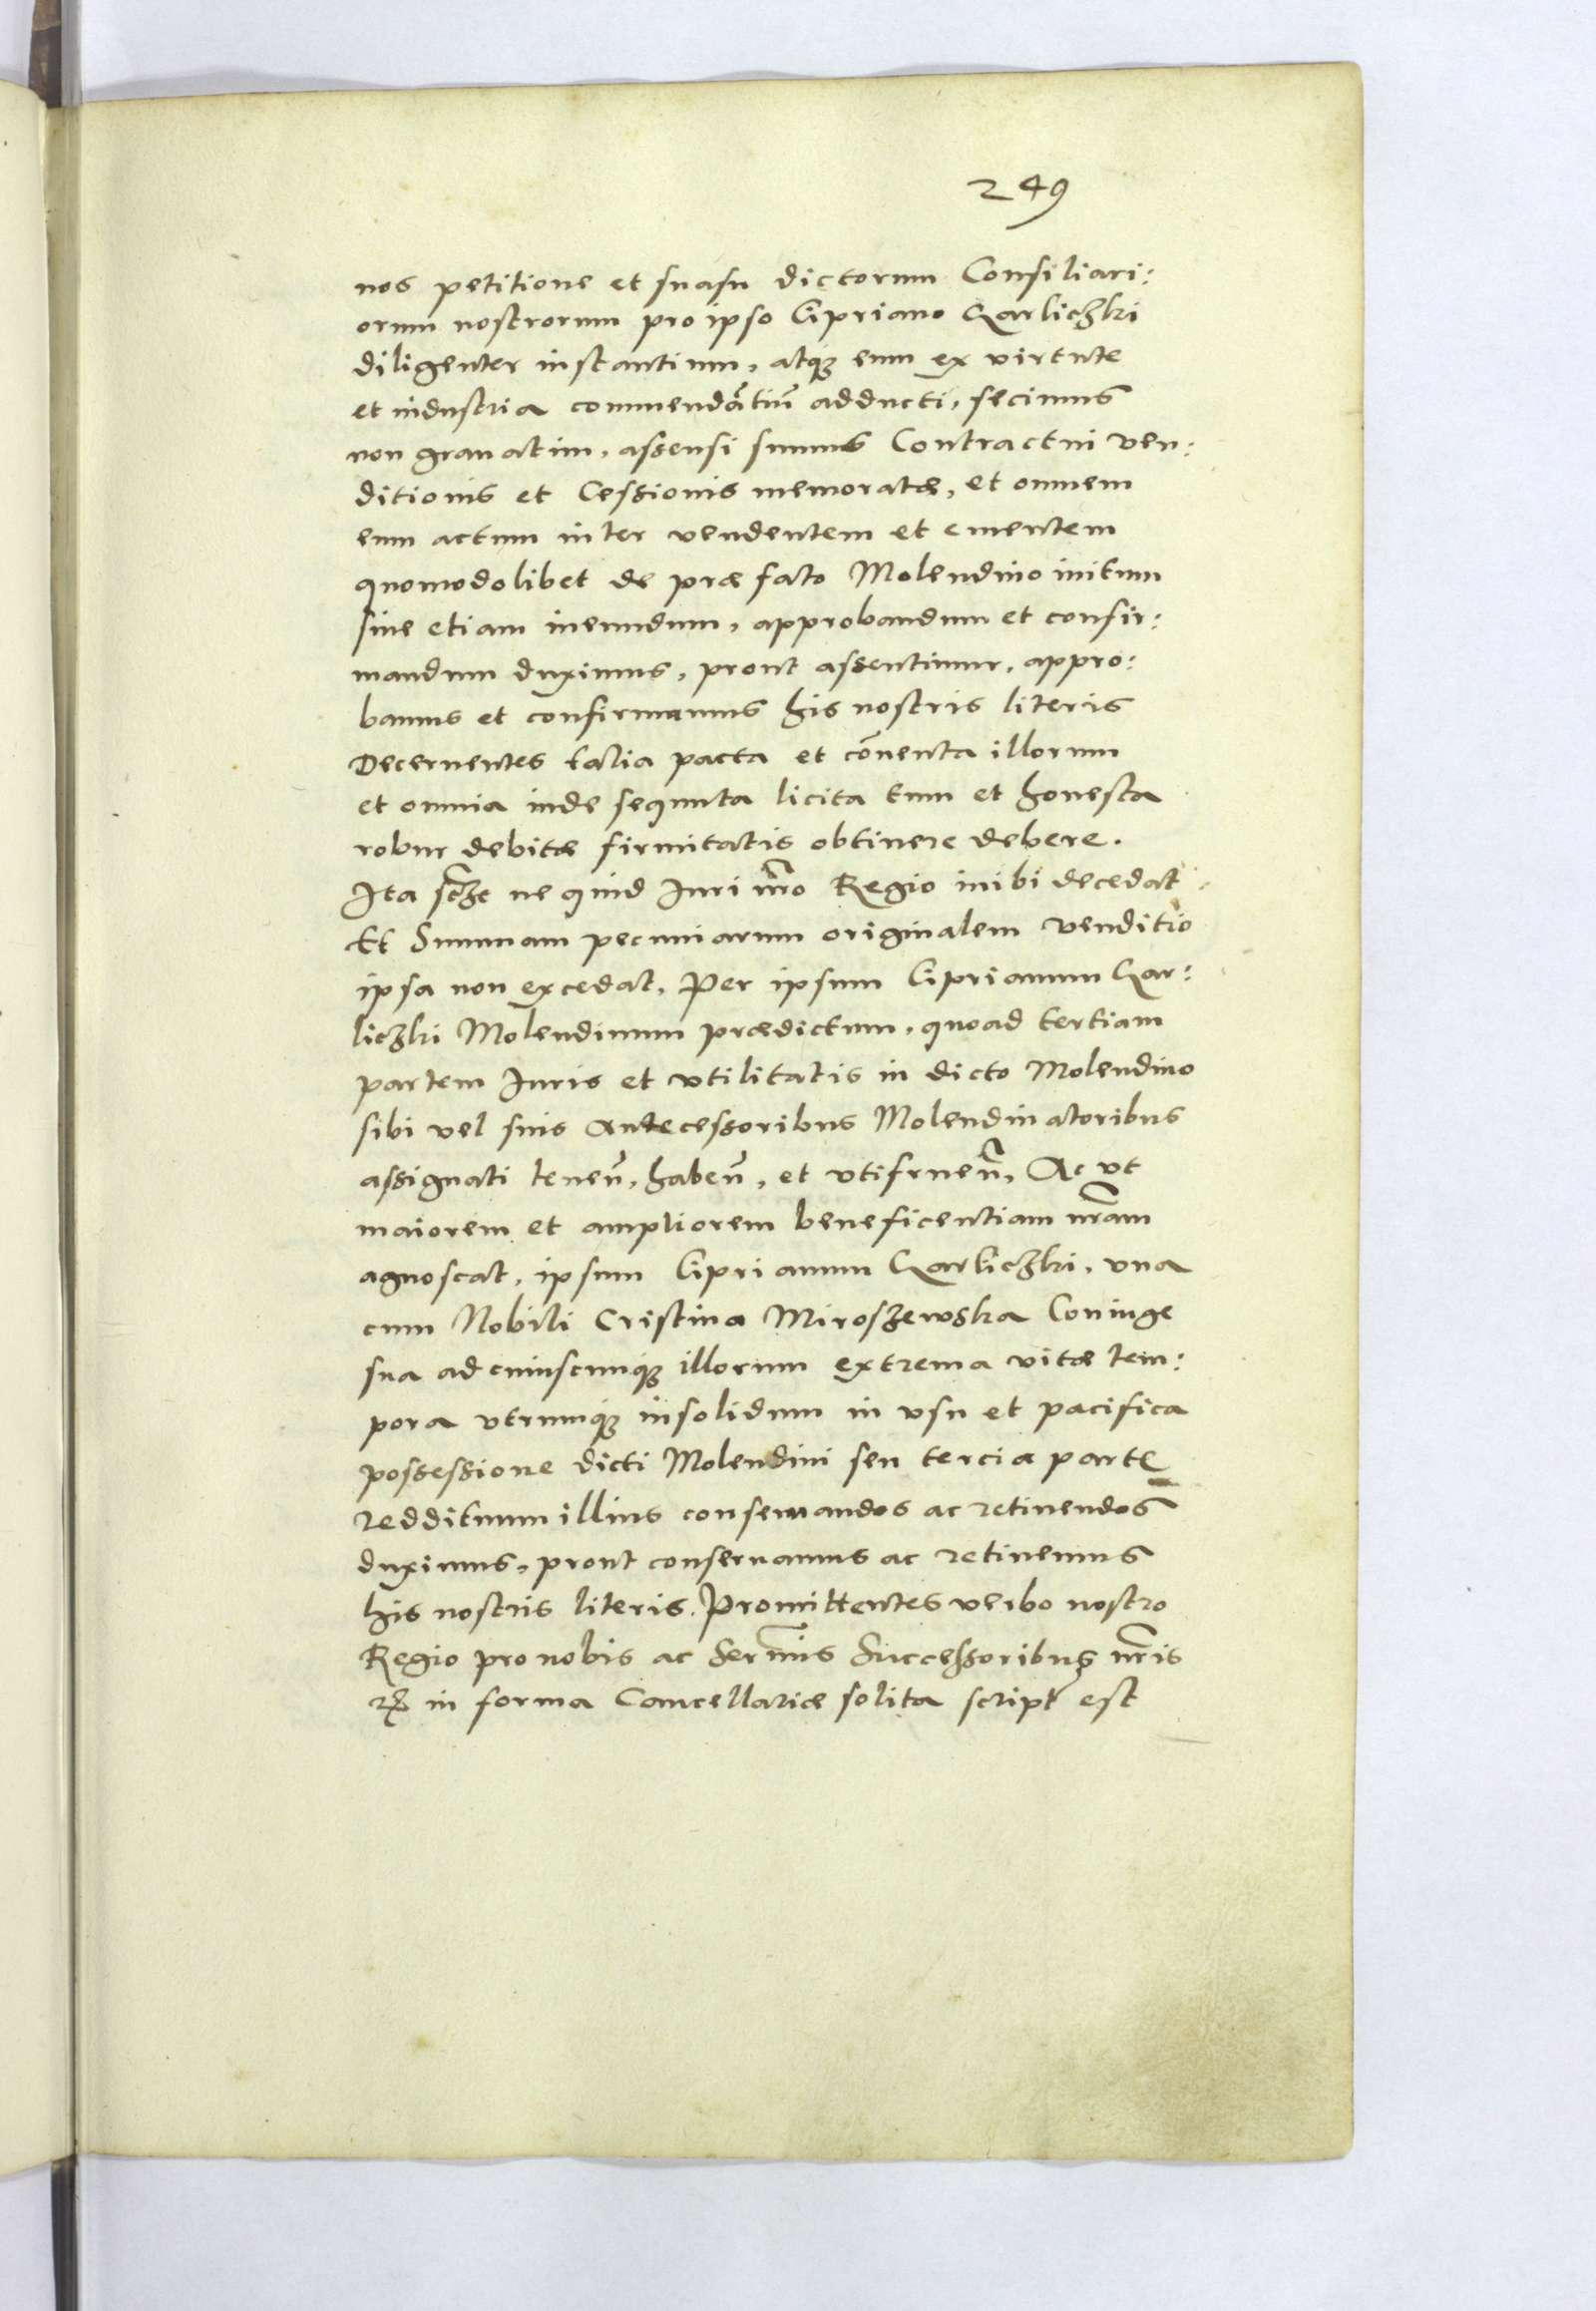 249
nos petitione et suasu dictorum Consiliari:
orum nostrorum pro ipso Cipriano Qarlichzki
diligenter instantium, atq3 eum ex virtute
et industria commendātiū adducti, fecimus
non grauatim, assensi sumus Contractui ven:
ditionis et Cessionis memoratæ, et omnem
eum actum inter vendentem et ementem
quomodolibet de præfato Molendino initum
siue etiam ineundum, approbandum et confir:
mandum duximus, prout assentimur, appro:
bamus et confirmamus his nostris literis
Decernentes talia pacta et cōuenta illorum
et omnia inde sequuta licita tum et honesta
robur debitæ firmitatis obtinere debere.
Ita sc̃3t ne quid Iuri nr̃o Regio inibi decedat
Et Summam pecuniarum originalem venditio
ipsa non excedat, Per ipsum Ciprianum Qar:
lichzki Molendinum prædictum, quoad tertiam
partem Iuris et vtilitatis in dicto Molendino
sibi vel suis Antecessoribus Molendinatoribus
assignati tenen̄, haben̄, et vtifruen̄, Ac vt
maiorem et ampliorem beneficentiam nr̃am
agnoscat, ipsum Ciprianum Qarlichzki, vna
cum Nobili Cristina Miroszewska Coniuge
sua ad cuiuscunq3 illorum extrema vitæ tem:
pora vtrumq3 insolidum in vsu et pacifica
possessione dicti Molendini seu tercia parte
reddituum illius conseruandos ac retinendos
duximus, prout conseruamus ac retinemus
his nostris literis. Promittentes verbo nostro
Regio pro nobis ac Serm̄is Successoribus nr̃is
etc in forma Cancellariæ solita script est